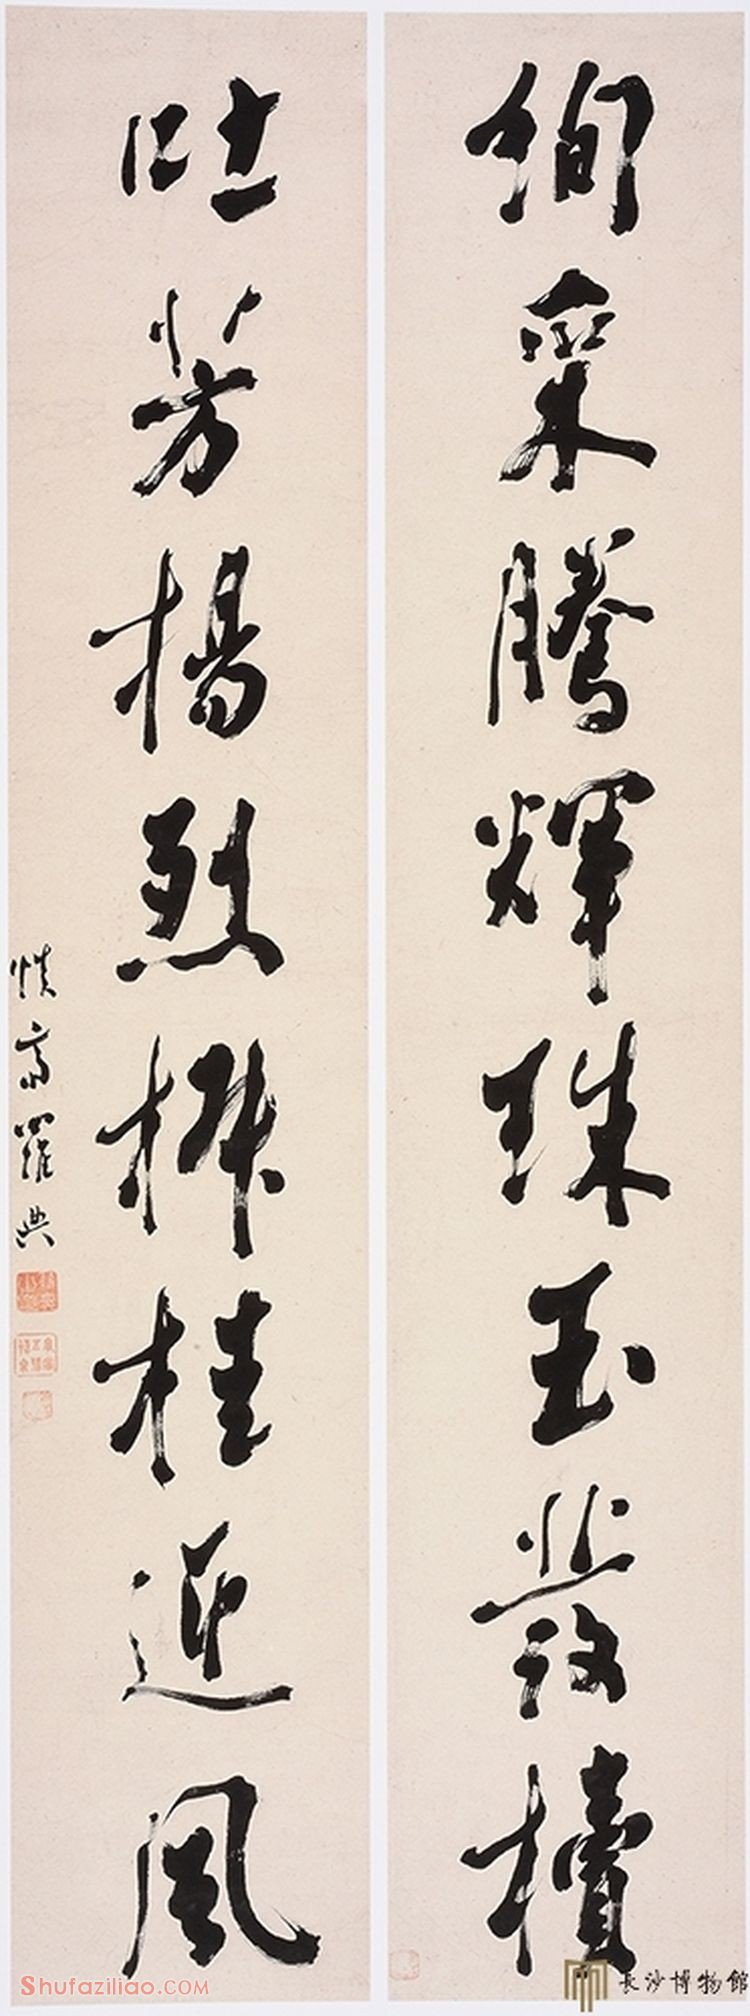 絢采騰輝珠玉發櫝
吐芳揚烈椒桂迎風
慎齋羅典
Shufaziliao.COM
長沙博物館